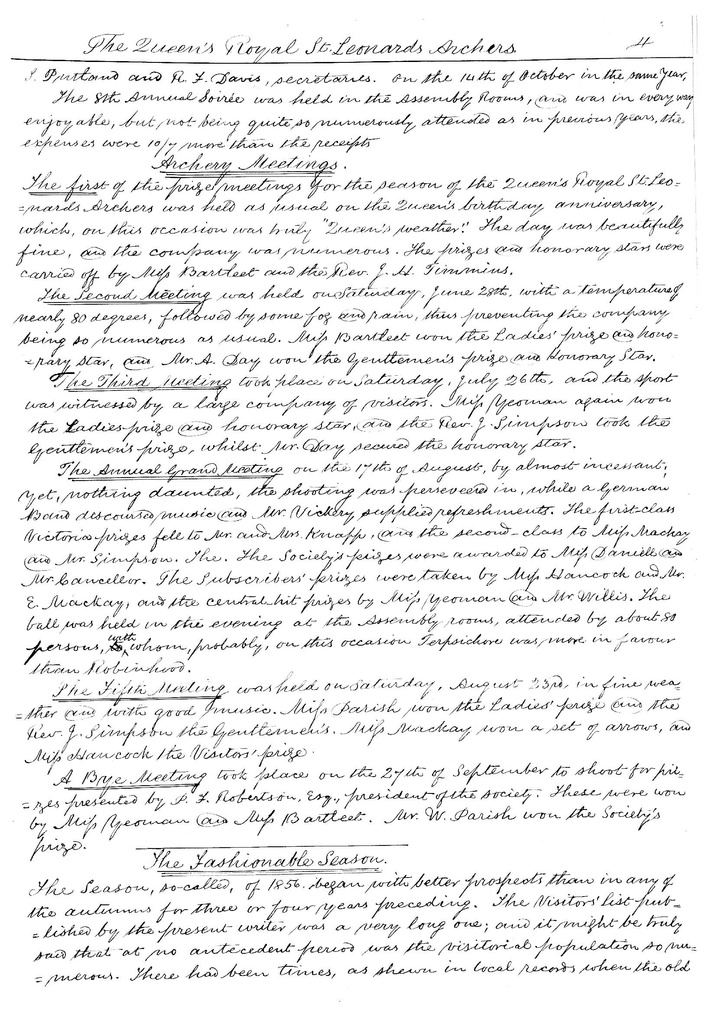 The Queen's Royal St. Leonards Archers 4
S. Putland and R. F. Davis, secretaries. On the 14th of October in the same year,
The 8th Annual Soirée was held in the Assembly Rooms, and was in every way
enjoyable, but not being quite so numerously attended as in previous years, the
expenses were 10/7 more than the receipts
Archery Meetings.
The first of the prize meetings for the season of the Queen's Royal St. Leo-
=nards Archers was held as usual on the Queen's birthday anniversary,
which, on this occasion was truly "Queen's weather". The day was beautifully
fine, and the company was numerous. The prizes and honorary stars were
carried off by Miss Bartleet and the Rev. J. H. Timmins.
The Second Meeting was held on Saturday, June 28th, with a temperature of
nearly 80 degrees, followed by some fog and rain, thus preventing the company
being so numerous as usual. Miss Bartleet won the Ladies' prize and hono-
=rary star, and Mr. A. Day won the Gentlemen's prize and Honorary Star.
The Third Meeting took place on Saturday, July 26th, and the sport
was witnessed by a large company of visitors. Miss Yeoman again won
the Ladies prize and honorary star, and the Rev. J. Simpson took the
Gentlemen's prize, whilst Mr. Day secured the honorary star.
The Annual Grand Meeting on the 17th of August, by almost incessant,
yet, nothing daunted, the shooting was persevered in, while a German
Band discoursed music and Mr. Vickery supplied refreshments. The first-class
Victoria prizes fell to Mr. and Mrs. Knapp, and the second-class to Miss Mackay
and Mr. Simpson. The. The Society's prizes were awarded to Miss Daniell and
Mr. Cancellor. The Subscribers' prizes were taken by Miss Hancock and Mr.
E. Mackay, and the central-hit prizes by Miss Yeoman and Mr. Willis. The
ball was held in the evening at the Assembly rooms, attended by about 80
persons, with whom, probably, on this occasion Terpsichore was more in favour
than Robinhood.
The Fifth Meeting was held on Saturday, August 23rd, in fine wea-
=ther and with good music. Miss Parish won the Ladies' prize and the
Rev. J. Simpson the Gentlemen's. Miss Mackay won a set of arrows, and
Miss Hancock the Visitors' prize.
A Bye Meeting took place on the 27th of September to shoot for pri-
=zes presented by P. F. Robertson, Esq., president of the society. These were won
by Miss Yeoman and Miss Bartleet. Mr. W. Parish won the Society's
prize.
The Fashionable Season.
The Season, so-called, of 1856 began with better prospects than in any of
the autumns for three or four years preceding. The Visitors' list pub-
=lished by the present writer was a very long one; and it might be truly
said that at no antecedent period was the visitorial population so nu-
=merous. There had been times, as shewn in local records when the old